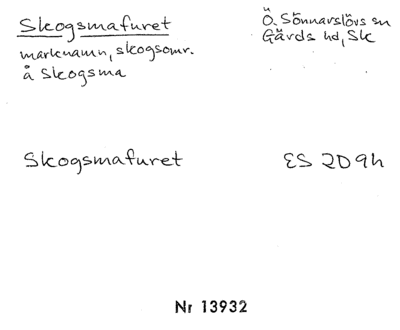 Skogsmafuret
Ö. Sönnarslövs sn
marknamn, skogsomr.
Gärds hd, Sk
å Skogsma
Skogsmafuret
ES 2D9h
Nr 13932